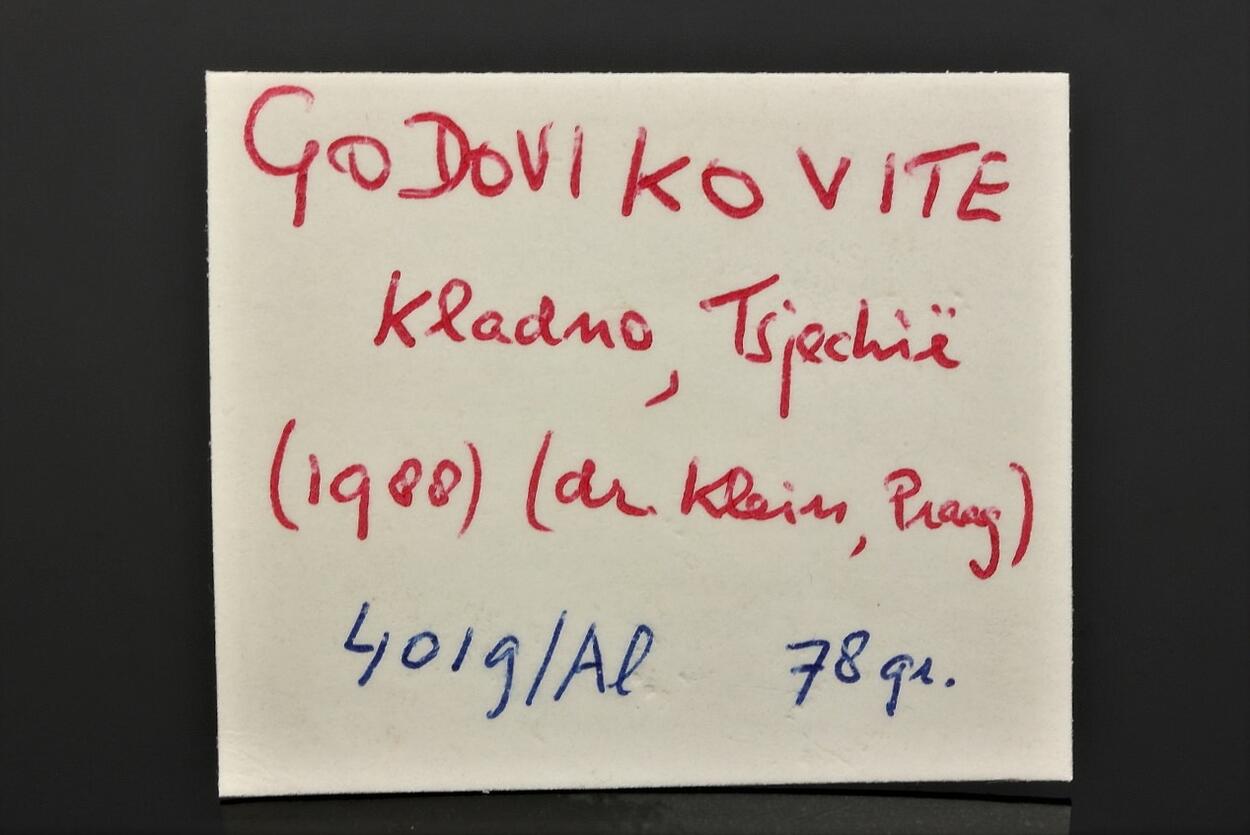 GODOVIKOVITE
Kladno, Tsjechië
(1988) (dr. Klein, Praag)
401g/Al 78 gr.